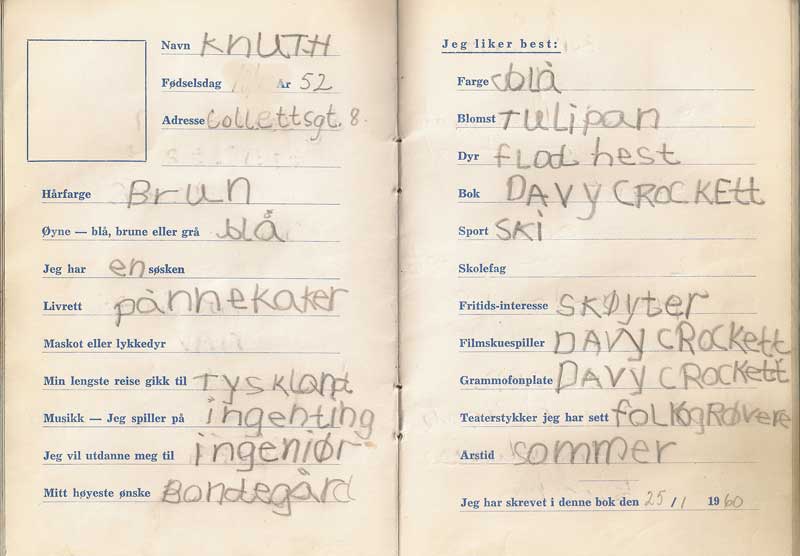 Navn KNUTH
Fødselsdag År 52
Adresse Collettsgt. 8.
Hårfarge Brun
Øyne — blå, brune eller grå blå
Jeg har en søsken
Livrett pånnekaker
Maskot eller lykkedyr
Min lengste reise gikk til Tyskland
Musikk — Jeg spiller på ingenting
Jeg vil utdanne meg til ingeniør
Mitt høyeste ønske Bondegård
Jeg liker best:
Farge blå
Blomst Tulipan
Dyr flod hest
Bok DAVY CROCKEtt
Sport SKi
Skolefag
Fritids-interesse SKØyter
Filmskuespiller DAVY CROCKEtt
Grammofonplate DAVY CROCKEtt
Teaterstykker jeg har sett folkogrøvere
Årstid sommer
Jeg har skrevet i denne bok den 25/1 1960